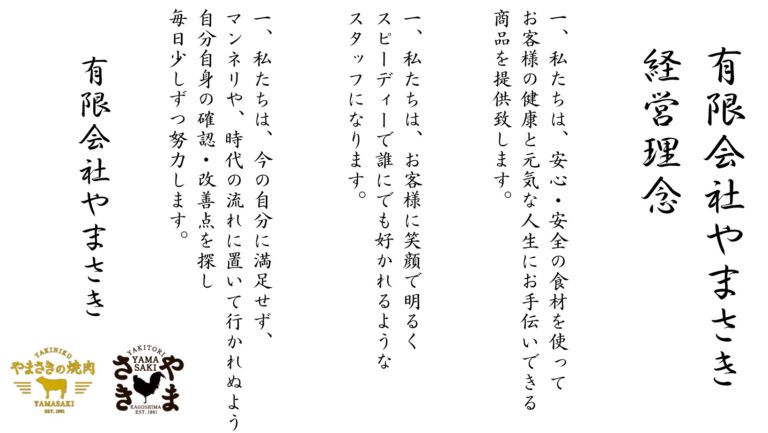 有限会社やまさき
経営理念
一、私たちは、安心・安全の食材を使って
お客様の健康と元気な人生にお手伝いできる
商品を提供致します。
一、私たちは、お客様に笑顔で明るく
スピーディーで誰にでも好かれるような
スタッフになります。
一、私たちは、今の自分に満足せず、
マンネリや、時代の流れに置いて行かれぬよう
自分自身の確認・改善点を探し
毎日少しずつ努力します。
有限会社やまさき
YAKINIKU
やまさきの焼肉
YAMASAKI
EST. 1991
YAKITORI
やま
さき
YAMA
SAKI
KAGOSHIMA
EST. 1991